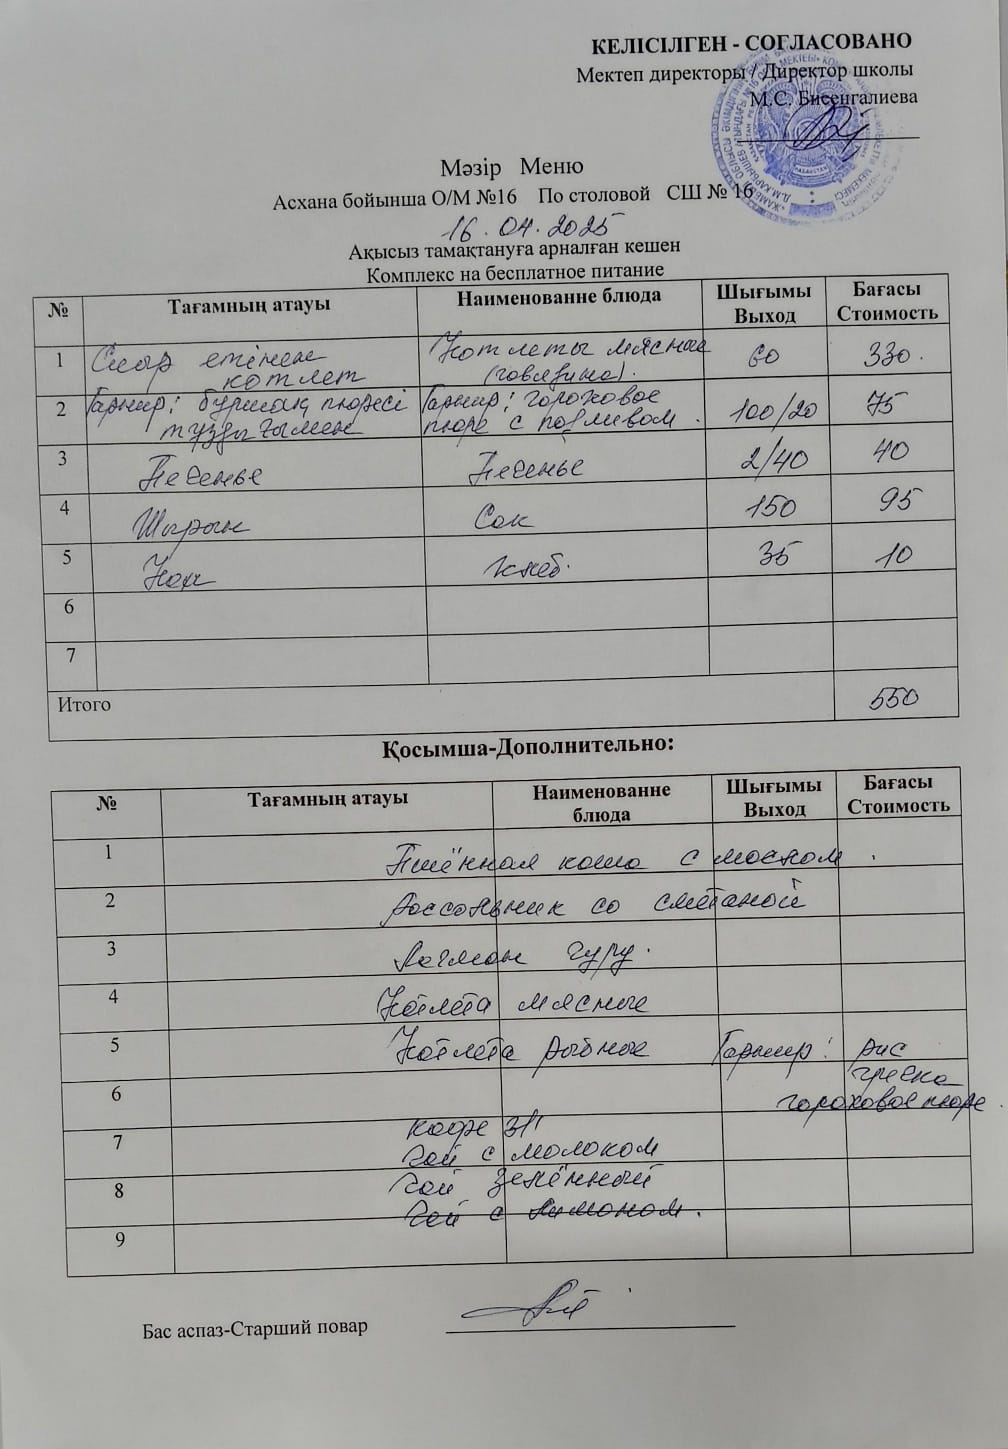 КЕЛІСІЛГЕН - СОГЛАСОВАНО
Мектеп директоры / Директор школы
М.С. Бисенгалиева
Мәзір Меню
Асхана бойынша О/М №16 По столовой СШ № 16
16.04.2025
Ақысыз тамақтануға арналған кешен
Комплекс на бесплатное питание
№ Тағамның атауы Наименованне блюда Шығымы Выход Бағасы Стоимость
1 Сиыр етінен котлет Котлеты мясные (говядина). 60 330.
2 Гарнир: бұршақ пюресі тұздығымен Гарнир: гороховое пюре с подливом. 100/20 75
3 Печенье Печенье 2/40 40
4 Шырын Сок 150 95
5 Нан Хлеб. 35 10
6
7
Итого 550
Қосымша-Дополнительно:
№ Тағамның атауы Наименованне блюда Шығымы Выход Бағасы Стоимость
1 Пшённая каша с маслом.
2 Рассольник со сметаной
3 Лагман гуру.
4 Котлета мясные
5 Котлета рыбные Гарнир: рис
гречка
6 гороховое пюре.
7 кофе 3/1
чай с молоком
8 чай зелённый
чай с лимоном.
9
Бас аспаз-Старший повар